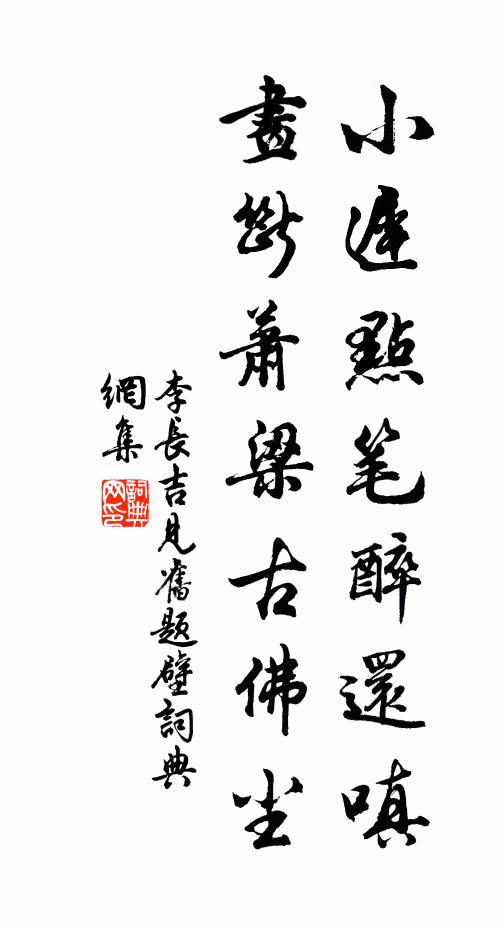 小遲點笔醉還嗔
畫斷蕭梁古佛尘
李長吉見舊題壁詞典
網集
詞典
网印